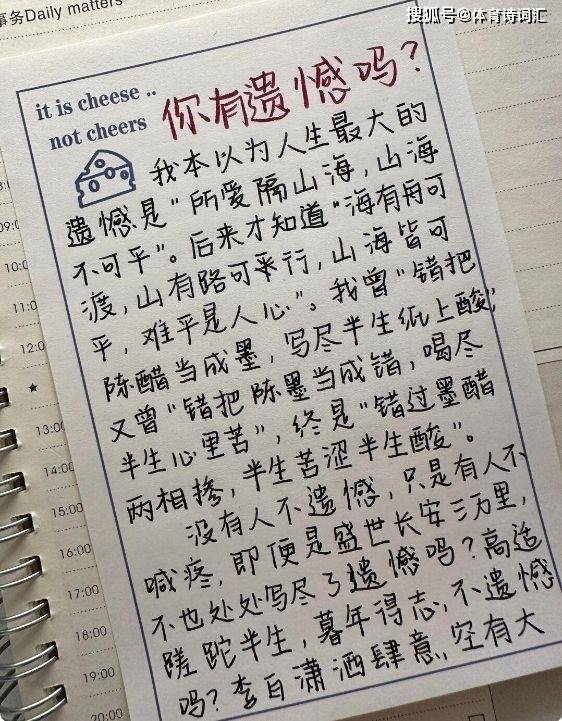 搜狐号@体育诗词汇
事务Daily matters
it is cheese ..
not cheers
你有遗憾吗?
我本以为人生最大的
遗憾是“所爱隔山海,山海
不可平”。后来才知道“海有舟可
渡,山有路可来行,山海皆可
平,难平是人心”。我曾“错把
陈醋当成墨,写尽半生纸上酸”,
又曾“错把陈墨当成错,喝尽
半生心里苦”,终是“错过墨醋
两相掺,半生苦涩半生酸”。
没有人不遗憾,只是有人不
喊疼,即便是盛世长安三万里,
不也处处写尽了遗憾吗?高适
蹉跎半生,暮年得志,不遗憾
吗?李白潇洒肆意,空有大
09:
10:
11:0
12:0
★
13:00
14:00
15:00
16:00
17:00
18:00
19:00
20:00